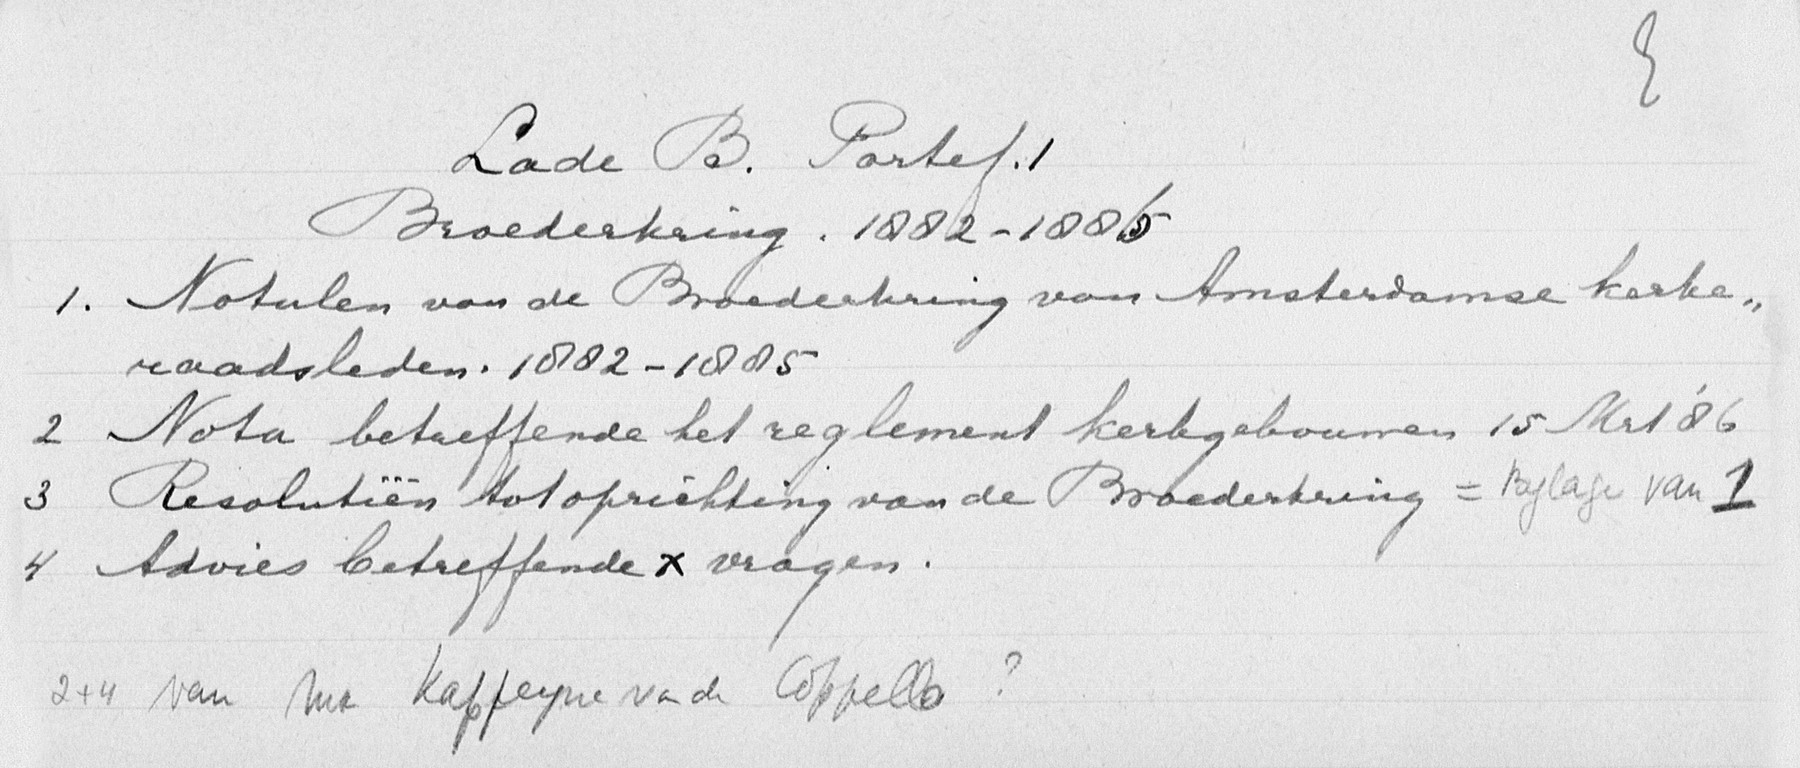 Lade B. Portef. 1
Broederkring. 1882-1885
1. Notulen van de Broederkring van Amsterdamse kerke„
raadsleden. 1882-1885
2 Nota betreffende het reglement kerkgebouwen 15 Mrt '86
3 Resolutiën tot oprichting van de Broederkring = Bijlage van 1
4 Advies betreffende x vragen.
2+4 van Mr Kappeyne va de Coppello ?